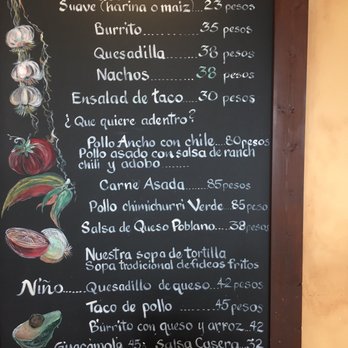 Suave (harina o maiz)...23 pesos
Burrito...........35 pesos
Quesadilla ......38 pesos
Nachos..........38 pesos
Ensalad de taco....30 pesos
¿Que quiere adentro?
Pollo Ancho con chile..80 pesos
Pollo asado con salsa de ranch
chili y adobo .......
Carne Asada......85 pesos
Pollo chimichurri Verde..85 peso
Salsa de Queso Poblano....38 pesos
Nuestra sopa de tortilla
Sopa tradicional de fideos fritos
Niño......Quesadillo de queso..42 pesos
Taco de pollo ....45 pesos
Burrito con queso y arroz..42
Guacamole 45: Salsa Casera..32